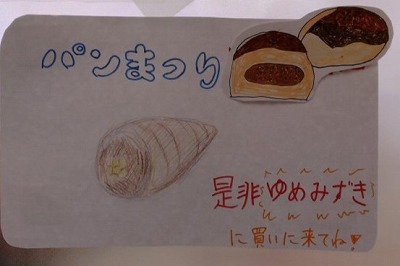 パンまつり
是非ゆめみずき
に買いに来てね♥